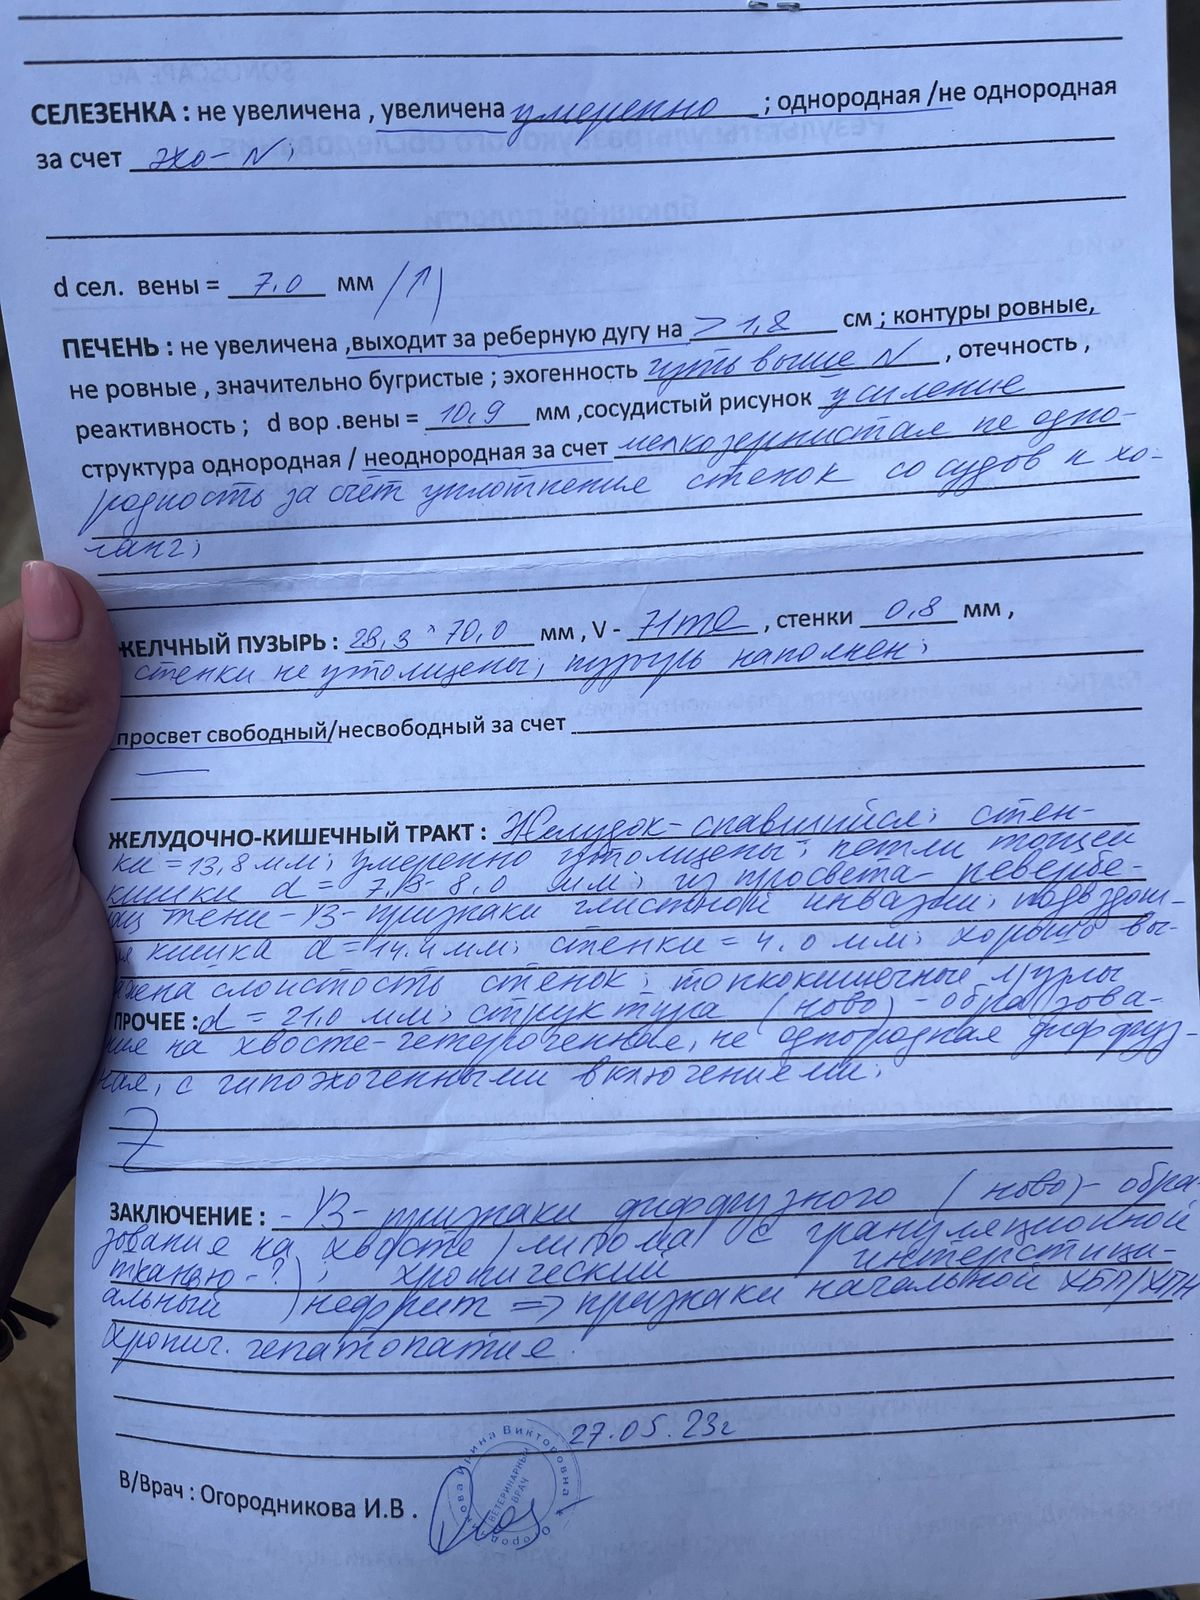 СЕЛЕЗЕНКА : не увеличена , увеличена умеренно ; однородная /не однородная
за счет эхо- N;
d сел. вены = 7,0 мм /↑/
ПЕЧЕНЬ : не увеличена ,выходит за реберную дугу на > 1,8 см ; контуры ровные,
не ровные , значительно бугристые ; эхогенность чуть выше N , отечность ,
реактивность ; d вор .вены = 10,9 мм ,сосудистый рисунок усиление
структура однородная / неоднородная за счет мелкозернистая не одно-
родность за счёт уплотнения стенок сосудов и хо-
ланг;
ЖЕЛЧНЫЙ ПУЗЫРЬ : 28,3 * 70,0 мм , V - , стенки 0,8 мм ,
стенки не утолщены; пузырь наполнен;
просвет свободный/несвободный за счет
—
ЖЕЛУДОЧНО-КИШЕЧНЫЙ ТРАКТ : Желудок- спавшийся; стен-
ки = 13,8 мм; умеренно утолщены; петли тощей
кишки d = 8,0 мм; из просвета- ревербе-
тени - УЗ- признаки глистной инвазии; подвздош-
кишка d = 14.4 мм; стенки = 4.0 мм; хорошо вы-
слоистость стенок; тонкокишечные л/узлы
ПРОЧЕЕ : d = 21,0 мм; структура (ново) - образова-
ния на хвосте- гетерогенная, не однородная диффуз-
ная, с гипоэхогенными включениями.
Z
ЗАКЛЮЧЕНИЕ : - УЗ- признаки диффузного (ново)- обра-
зования на хвосте (липома с грануляционной
тканью -?); хронический (интерстици-
альный) нефрит => признаки начальной ХБП/ХПН
хронич. гепатопатия
27.05.23г
В/Врач : Огородникова И.В .
Огородникова Ирина Викторовна
ВЕТЕРИНАРНЫЙ
ВРАЧ